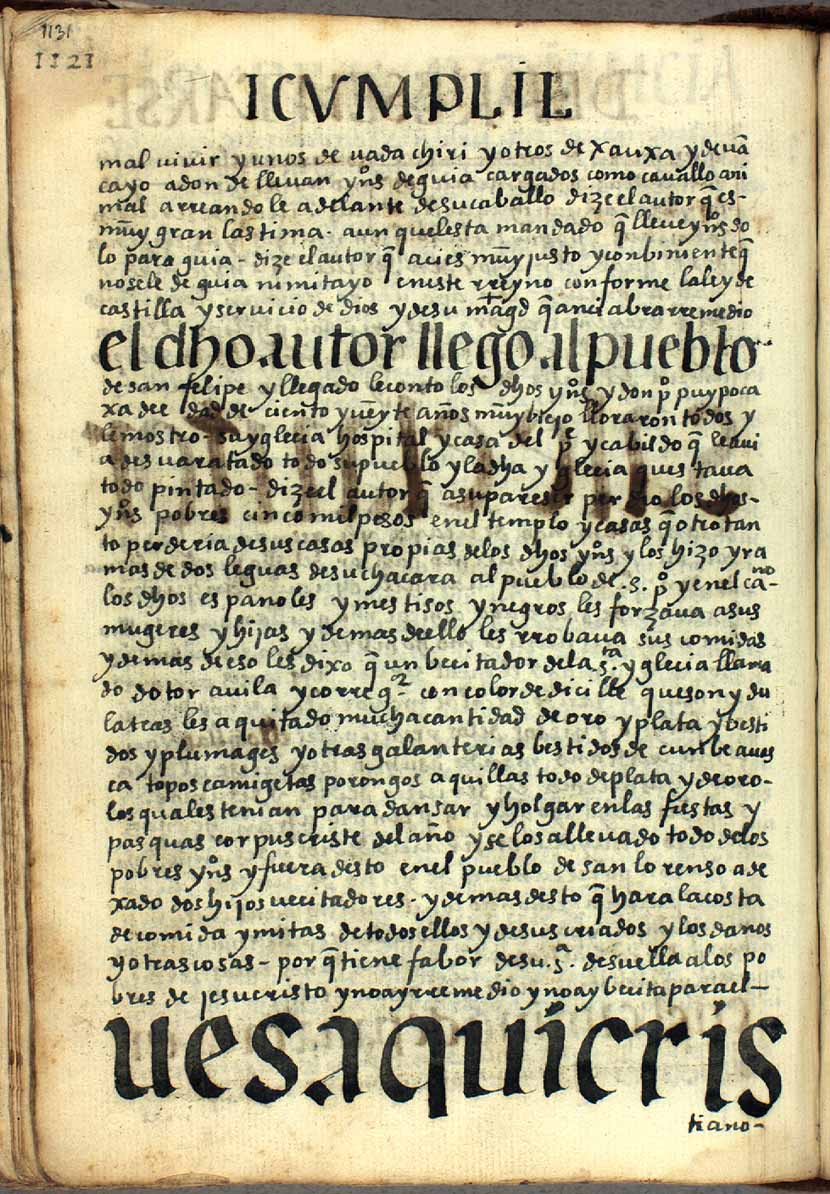 1131
1121
ICVMPLIL
mal vivir y unos de uada chiri y otros de xauxa y de uã
cayo adonde lleuan yn̄s de guia cargados como cauallo ani
mal arreandole adelante de su caballo dize el autor q̃ es-
muy gran lastima - aunque le sta mandado q̃ lleue yn̄s do
lo para guia - dize el autor q̃ aci es muy justo y conbiniente q̃
no se le de guia ni mitayo en este rreyno conforme la ley de
castilla y seruicio de dios y de su mag̃d q̃ anci abra rremedio
el dho autor llego al pueblo
de san felipe y llegado le conto los dhos yn̄s y don p̊ puypoca
xa de edad de ciento y ueynte años muy biejo lloraron todos y
le mostro - sa yglecia hospital y casa del p̃ y cabildo q̃ le aui
a desuaratado todo su pueblo y la dha yglecia questaua
todo pintado - dize el autor q̃ a su pareser perdio los dhos -
yn̄s pobres cinco mil pesos en el templo y casas q̃ otro tan
to perderia de sus casas propias de los dhos yn̄s y los hizo yr a
mas de dos leguas de su chacara al pueblo de .s. p̊ y en el ca-no
los dhos espanoles y mestisos y negros les forzaua a sus
mugeres y hijas y demas de ello les rrobaua sus comidas
y demas de eso les dixo q̃ un becitador de la s.ta yglecia llama
do dotor auila y correg.or con color de dicille que son ydu
latras les a quitado mucha cantidad de oro y plata y besti
dos y plumages y otras galanterias bestidos de cunbe auas
ca topos camigetas porongos aquillas todo de plata y de oro -
los quales tenian para dansar y holgar en las fiestas y
pasquas corpus criste del año y se los a lleuado todo de los
pobres yn̄s y fuera desto en el pueblo de san lorenso a de
xado dos hijos uecitadores - y demas desto q̃ hara la costa
de comida y mitas de todos ellos y de sus criados y los danos
y otras cosas - por q̃ tiene fabor de su .s.a desuella a los po
bres de jesucristo y no ay rremedio y no ay becita para el -
ues aqui cris
tiano -